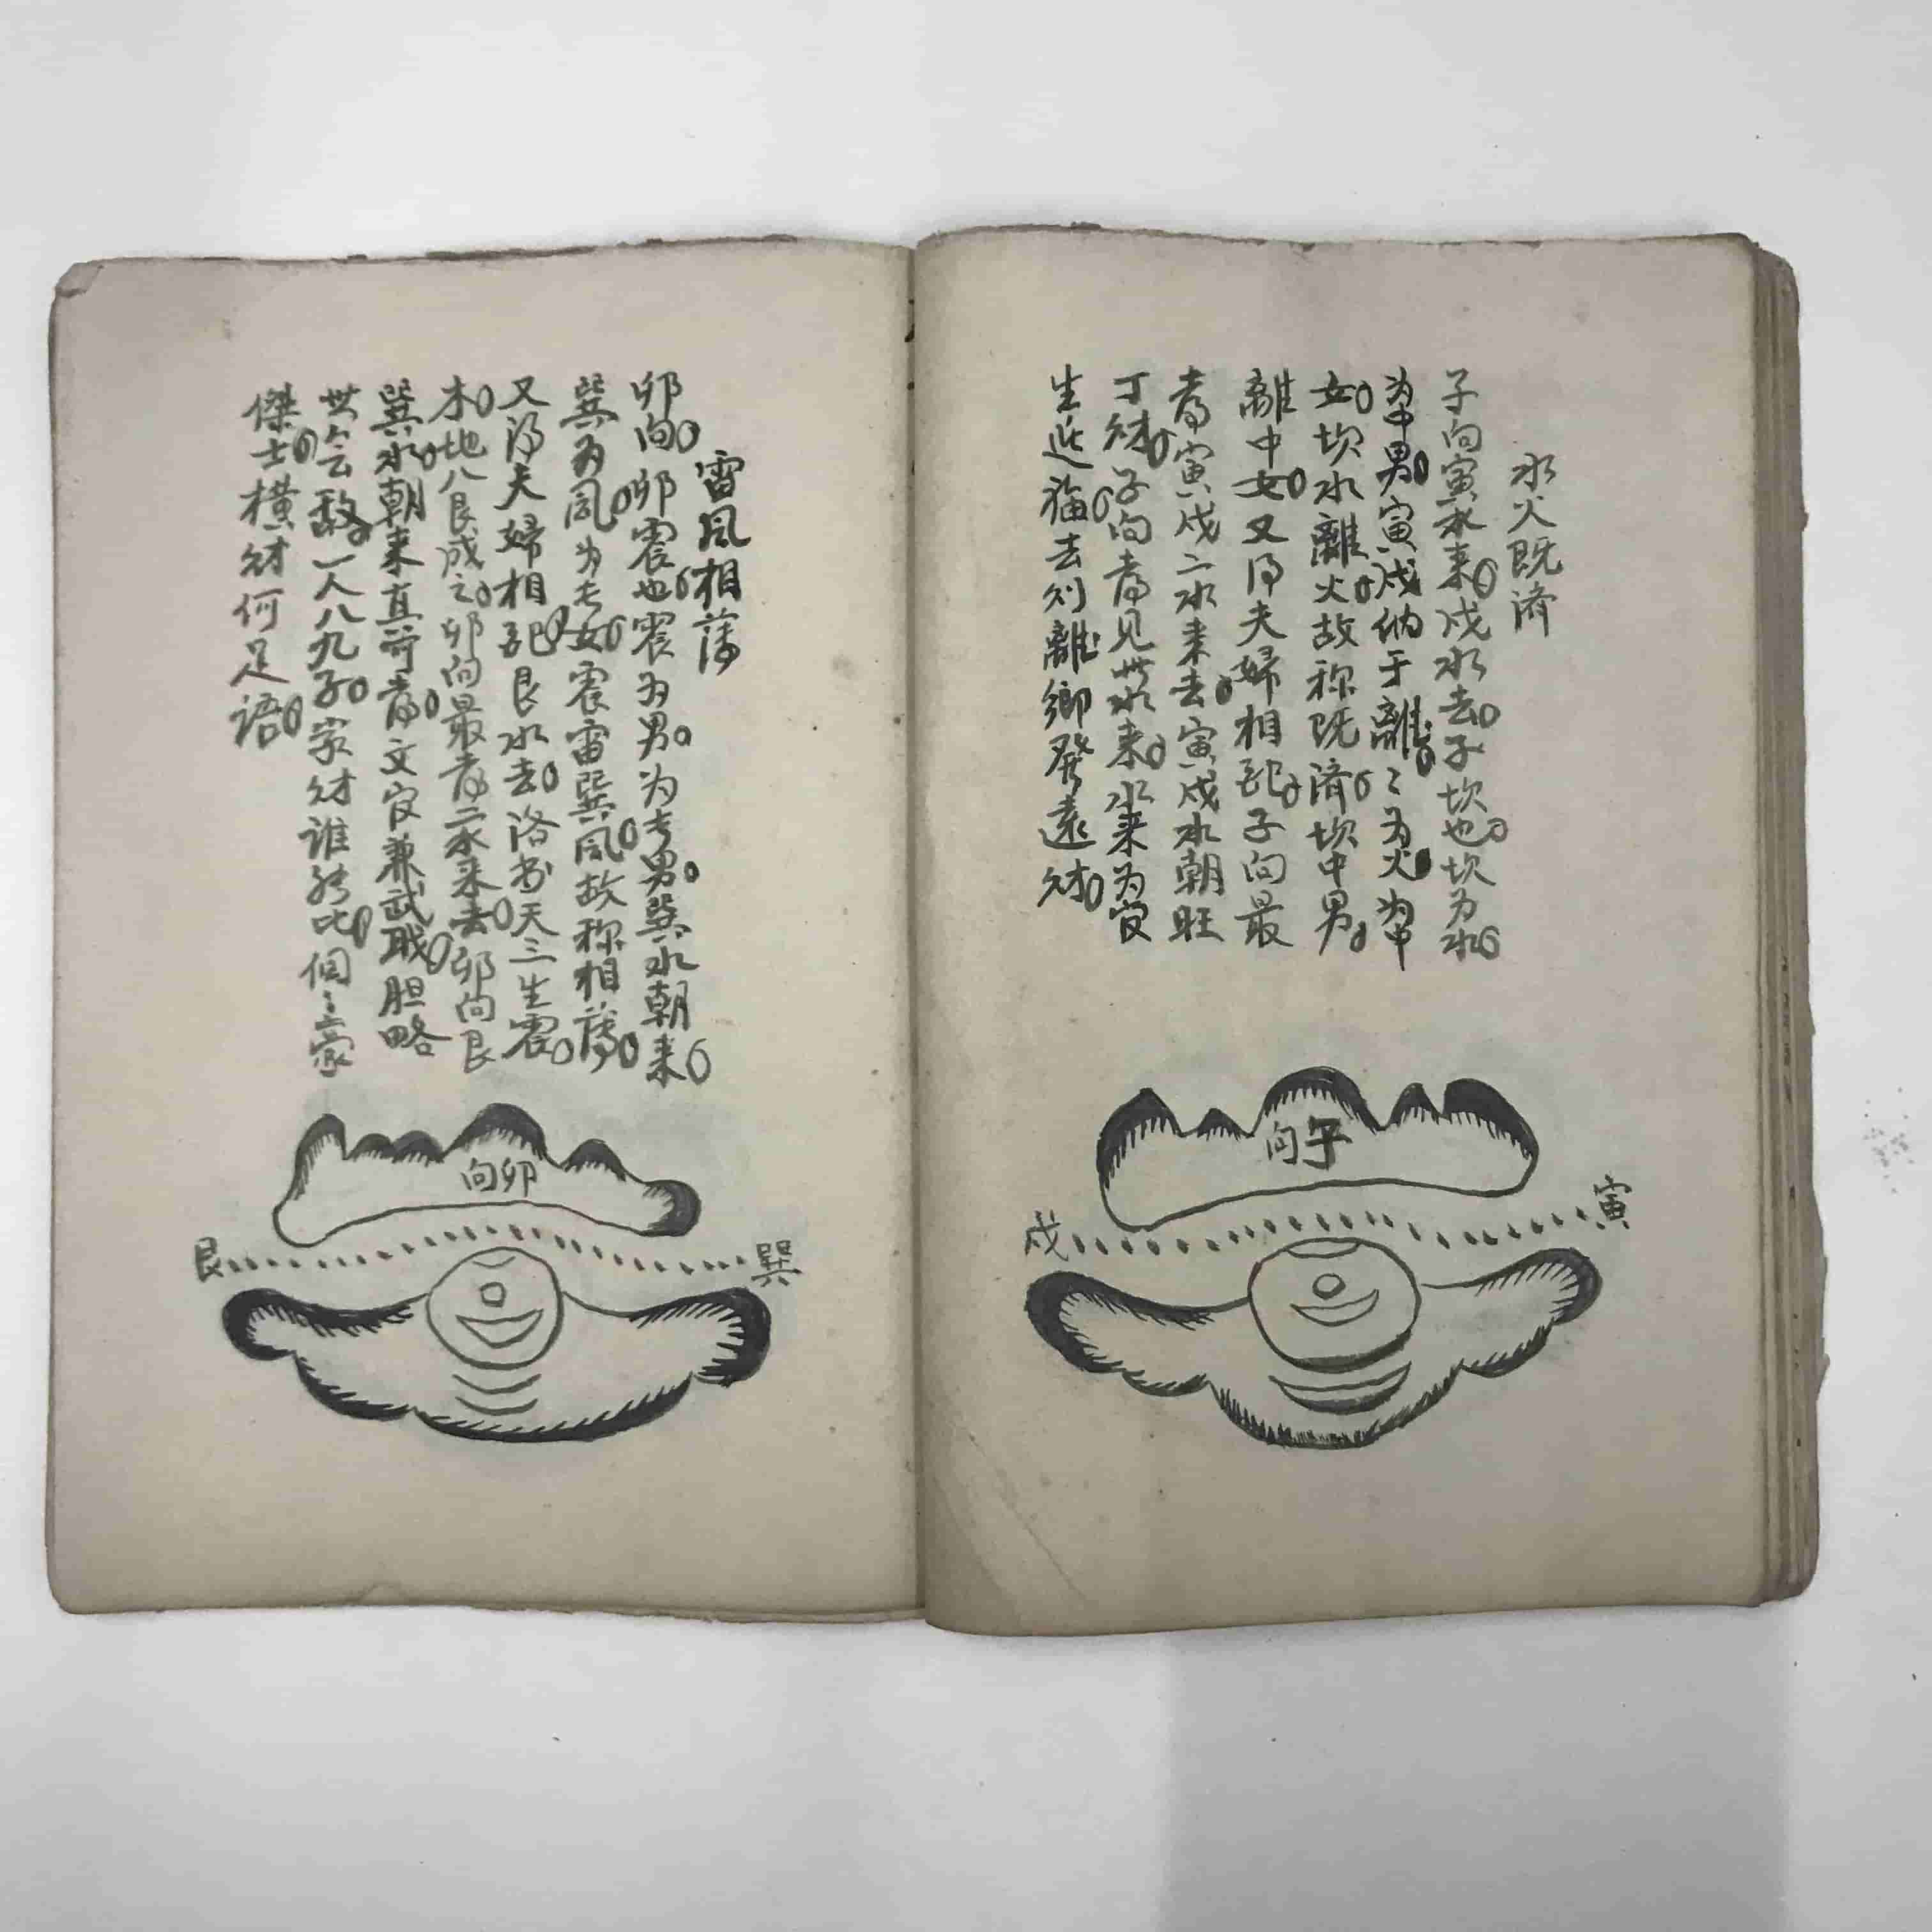 水火既済
子向寅水来。戌水去。子坎也。坎为水。
为中男。寅戌纳于離。離々为火。为中
女。坎水離火。故称既済。坎中男。
離中女。又得夫婦相配。子向最
喜寅戌二水来去。寅戌水朝旺
丁财。子向喜见此水来。水来为官
生近福。去则離鄉發遠财。
向子
戌
寅
雷風相薄
卯向。卯震也。震为男。为长男。巽水朝来。
巽为風。为长女。震雷巽風。故称相薄。
又得夫婦相配。艮水去。洛书天三生震。
木。地八艮成之。卯向最喜二水来去。卯向艮
巽水。朝来真可喜。文官兼武职。胆略
世无敵。一人八九子。家财谁能比。個々豪
傑士。横财何足語。
向卯
艮
巽